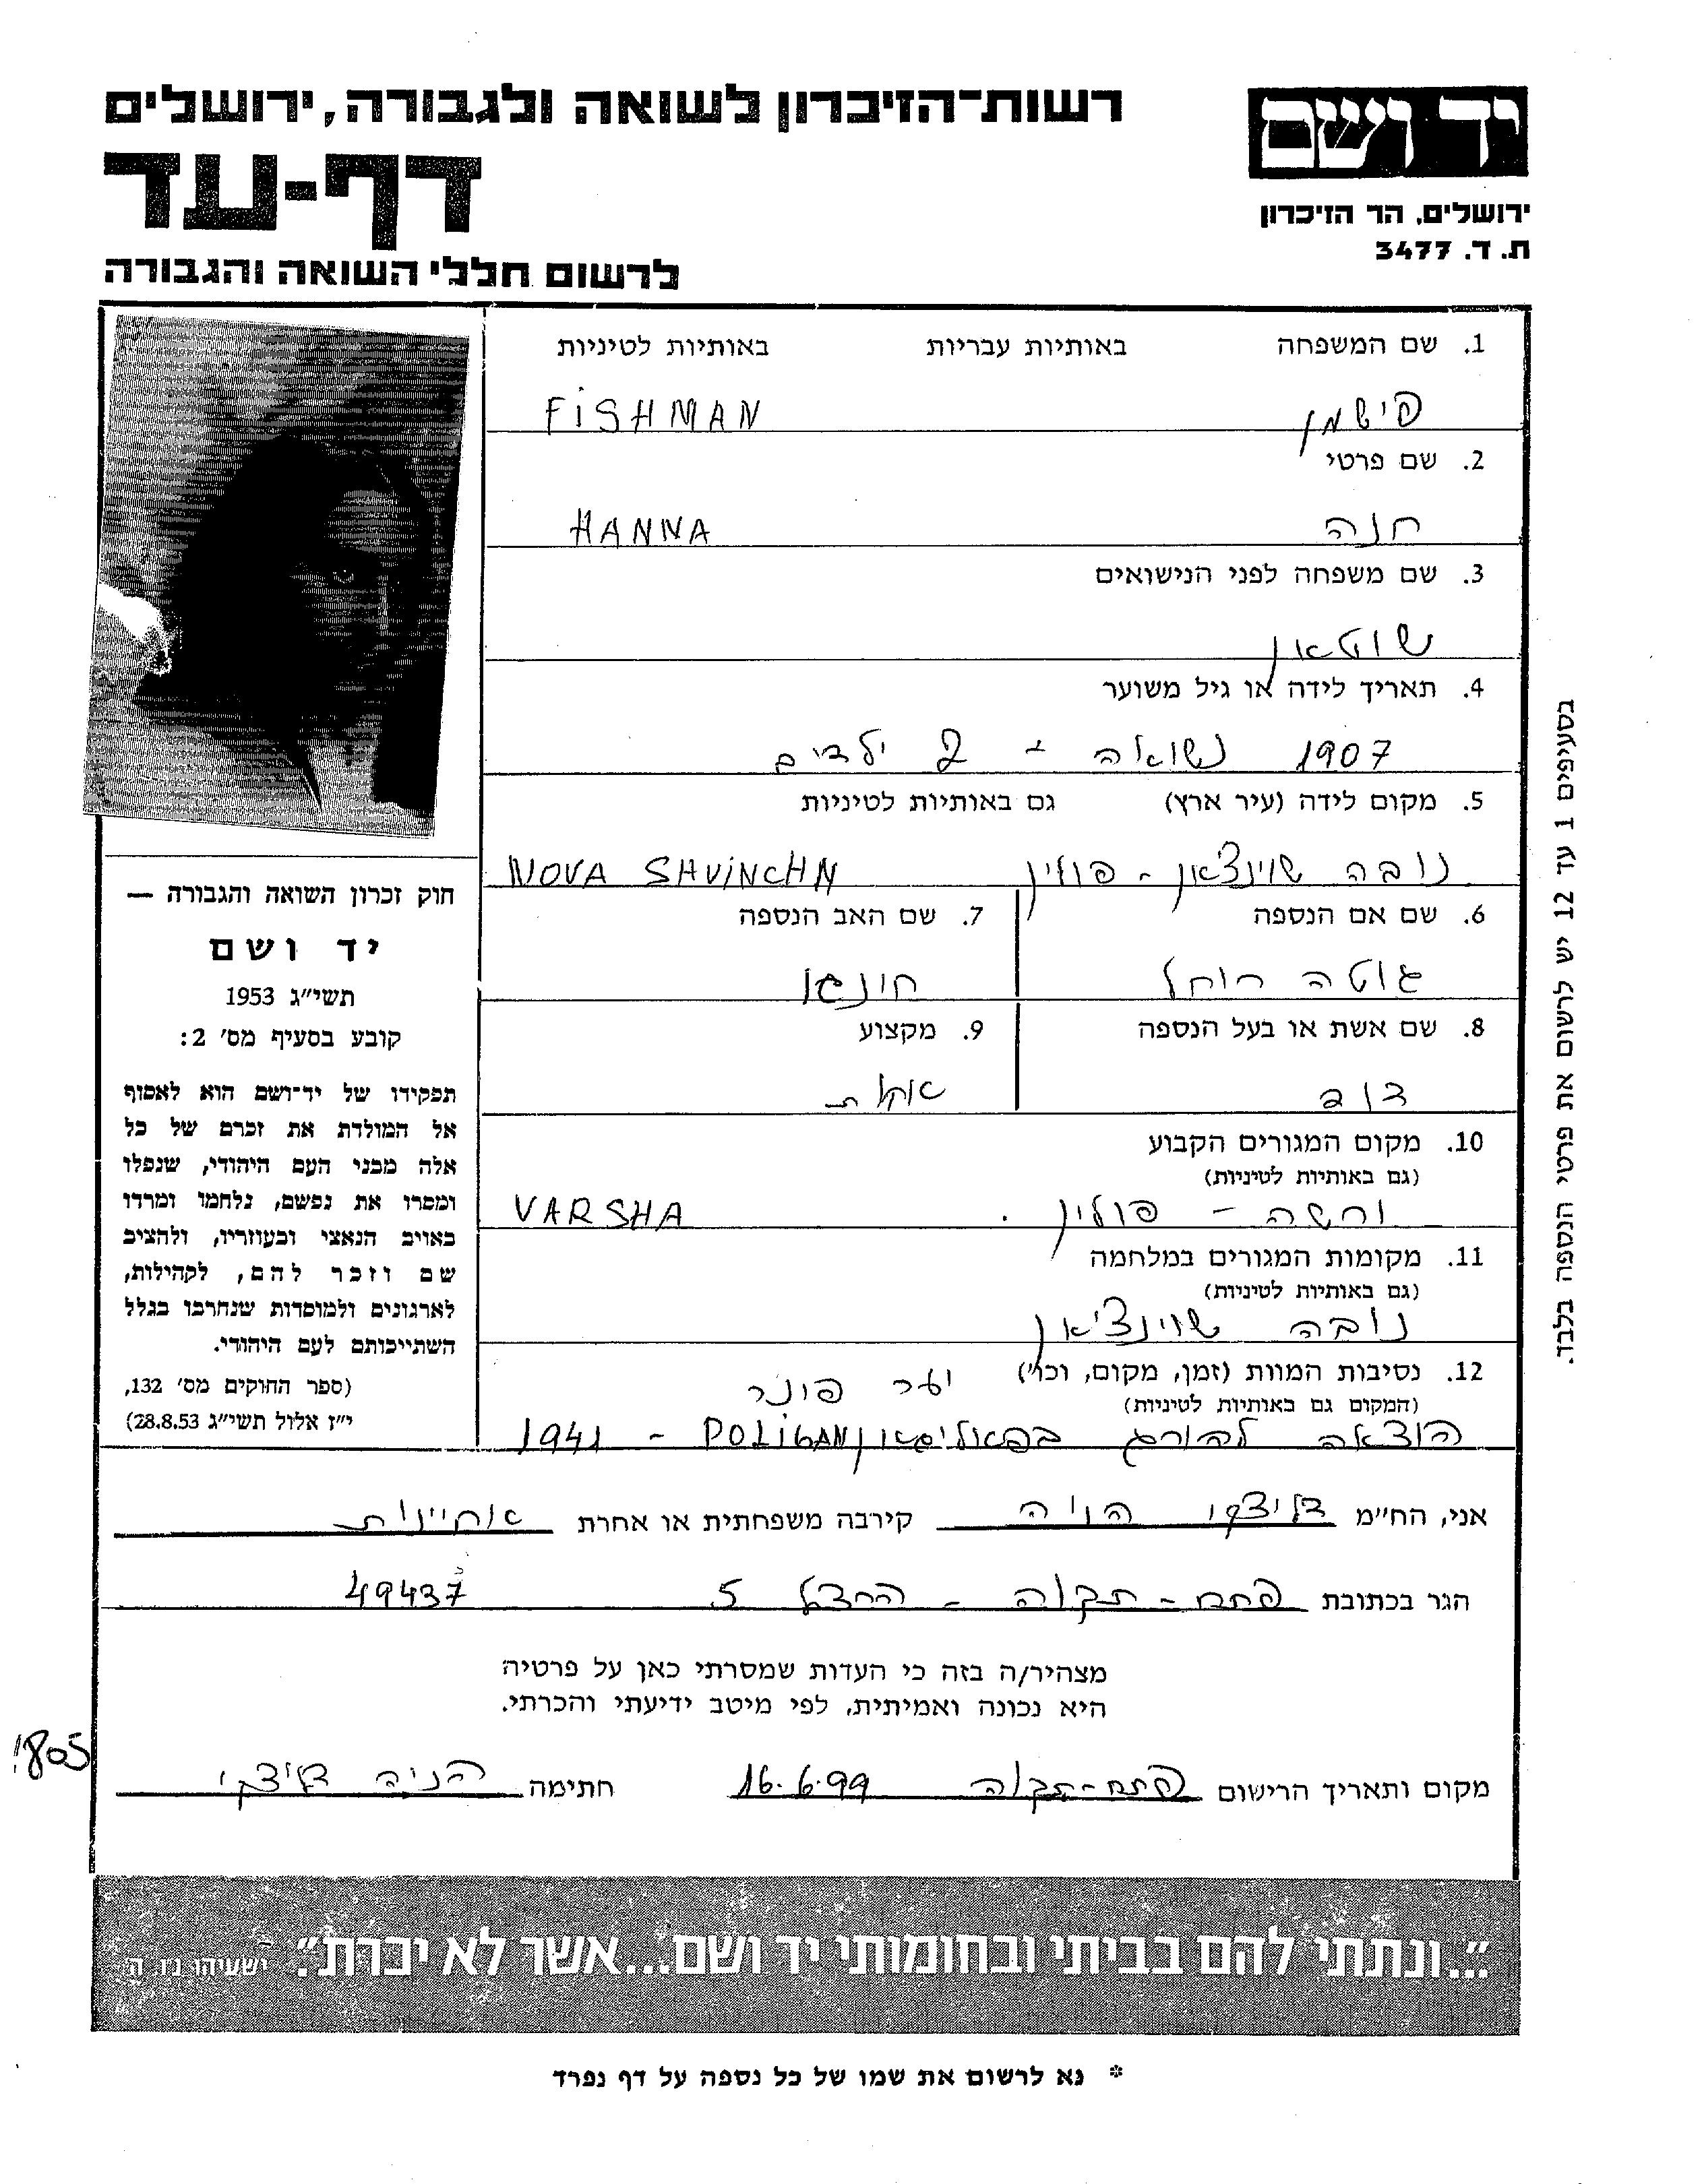 רשות-הזיכרון לשואה ולגבורה, ירושלים
דף-עד
לרשום חללי השואה והגבורה
יד ושם
ירושלים, הר הזיכרון
ת. ד. 3477
1. שם המשפחה באותיות עבריות באותיות לטיניות
פישמן FiSHMAN
2. שם פרטי
חנה HANNA
3. שם משפחה לפני הנישואים
שוטאן
4. תאריך לידה או גיל משוער
1907 נשואה - 2 ילדים
5. מקום לידה (עיר ארץ) גם באותיות לטיניות
נובה שוינצ'אן - פולין NOVA SHViNCHN
6. שם אם הנספה 7. שם האב הנספה
גוטה רוחל
8. שם אשת או בעל הנספה 9. מקצוע
דוב אחות
10. מקום המגורים הקבוע
(גם באותיות לטיניות)
ורשה - פולין VARSHA
11. מקומות המגורים במלחמה
(גם באותיות לטיניות)
נובה שוינצ'יאן
12. נסיבות המוות (זמן, מקום, וכו')
(המקום גם באותיות לטיניות)
יער פונר
הוצאה להורג בפאליגאן POLiGAN - 1941
חוק זכרון השואה והגבורה —
יד ושם
תשי"ג 1953
קובע בסעיף מס' 2:
תפקידו של יד-ושם הוא לאסוף
אל המולדת את זכרם של כל
אלה מבני העם היהודי, שנפלו
ומסרו את נפשם, נלחמו ומרדו
באויב הנאצי ובעוזריו, ולהציב
שם וזכר להם, לקהילות,
לארגונים ולמוסדות שנחרבו בגלל
השתייכותם לעם היהודי.
(ספר החוקים מס' 132,
י"ז אלול תשי"ג 28.8.53)
בסעיפים 1 עד 12 יש לרשום את פרטי הנספה בלבד.
אני, הח"מ הניה קירבה משפחתית או אחרת אחיינות
הגר בכתובת פתח-תקוה - הרצל 5 49437
מצהיר/ה בזה כי העדות שמסרתי כאן על פרטיה
היא נכונה ואמיתית, לפי מיטב ידיעתי והכרתי.
מקום ותאריך הרישום פתח-תקוה 16.6.99 חתימה הניה
1805
"...ונתתי להם בביתי ובחומותי יד ושם...אשר לא יכרת". ישעיהו נ"ו, ה'
* נא לרשום את שמו של כל נספה על דף נפרד